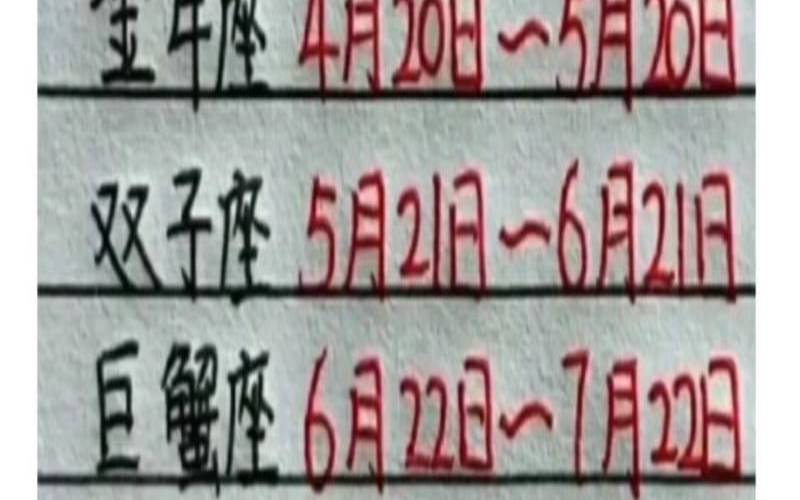 金牛座 4月20日~5月20日
双子座 5月21日~6月21日
巨蟹座 6月22日~7月22日